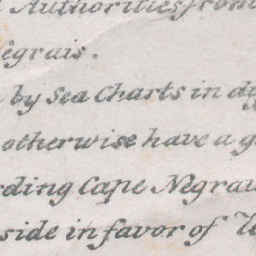 Authorities from
egrais.
by Sea Charts in d
otherwise have a g
ding Cape Negrai
side in favor of